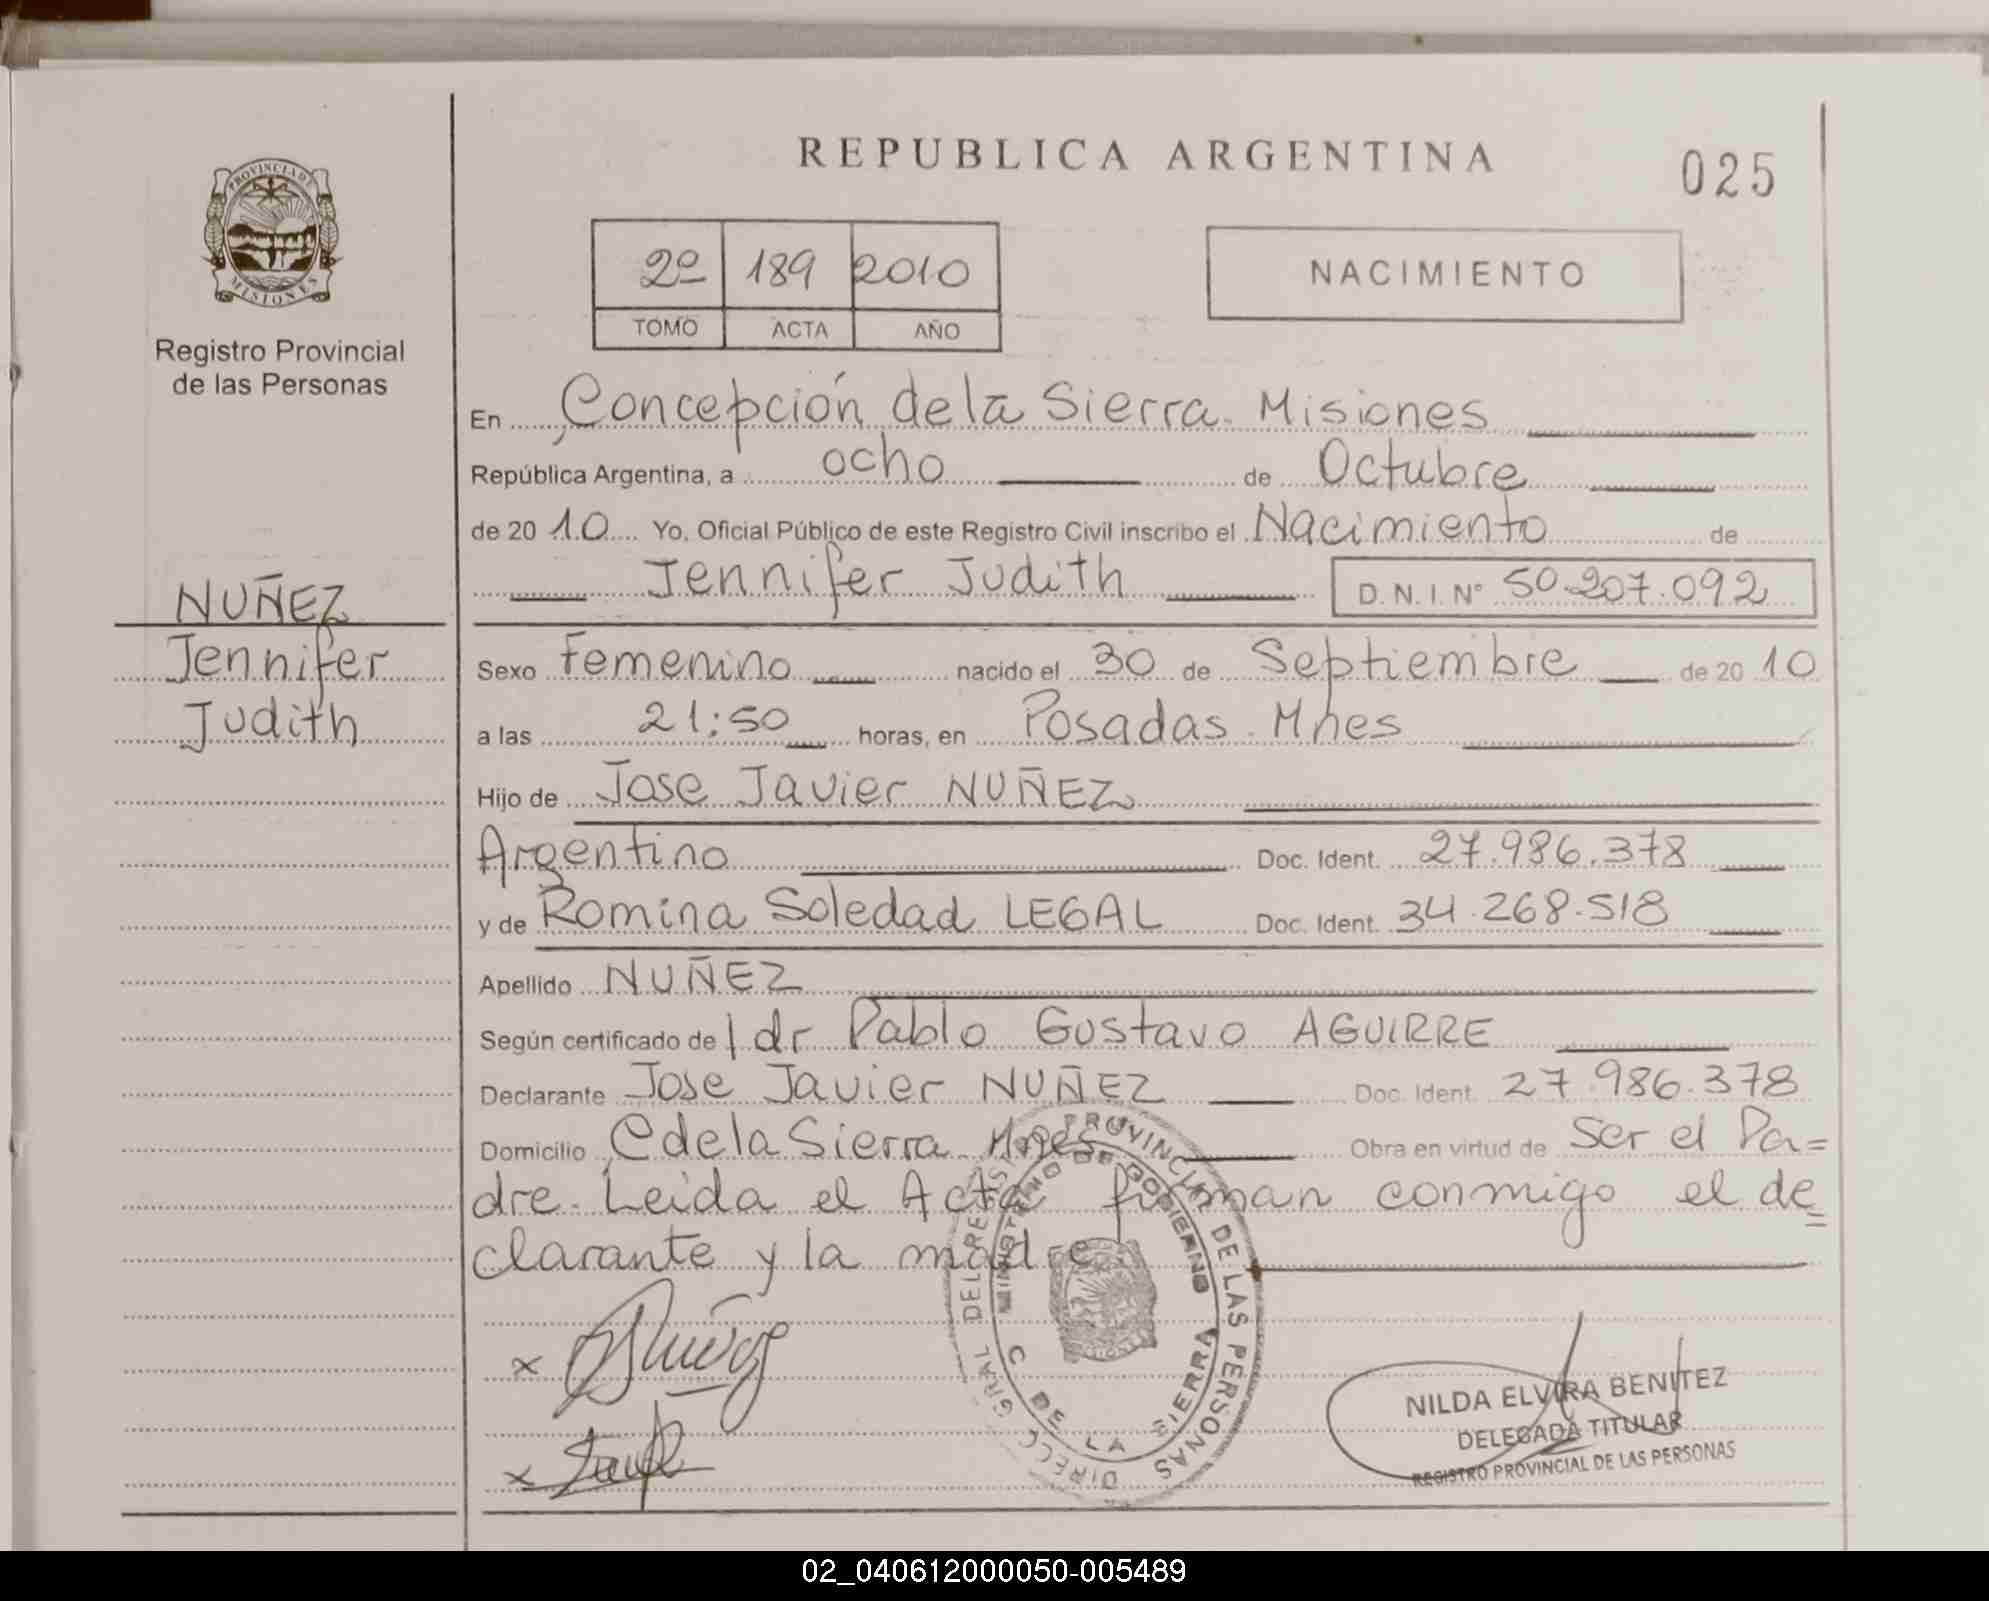 REPUBLICA ARGENTINA
025
PROVINCIA DE
MISIONES
Registro Provincial
de las Personas
2º 189 2010
TOMO ACTA AÑO
NACIMIENTO
En Concepción de la Sierra. Misiones
República Argentina, a ocho de Octubre
de 2010 Yo, Oficial Público de este Registro Civil inscribo el Nacimiento de
Jennifer Judith D.N.I. Nº 50.207.092
NUÑEZ
Jennifer
Judith
Sexo Femenino nacido el 30 de Septiembre de 2010
a las 21:50 horas, en Posadas. Mnes
Hijo de Jose Javier NUÑEZ
Argentino Doc. Ident. 27.986.378
y de Romina Soledad LEGAL Doc. Ident. 34.268.518
Apellido NUÑEZ
Según certificado de l dr Pablo Gustavo AGUIRRE
Declarante Jose Javier NUÑEZ Doc. Ident. 27.986.378
Domicilio C de la Sierra Mnes Obra en virtud de Ser el Pa=
dre. Leida el Acta firman conmigo el de=
clarante y la madre
DIRECC. GRAL DEL REGISTRO PROVINCIAL DE LAS PERSONAS
MINISTERIO DE GOBIERNO
C DE LA SIERRA
x
x
NILDA ELVIRA BENITEZ
DELEGADA TITULAR
REGISTRO PROVINCIAL DE LAS PERSONAS
02_040612000050-005489